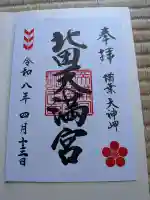 奉拝
備蒙 天神岬
北田天満宮
令和八年 四月十三日